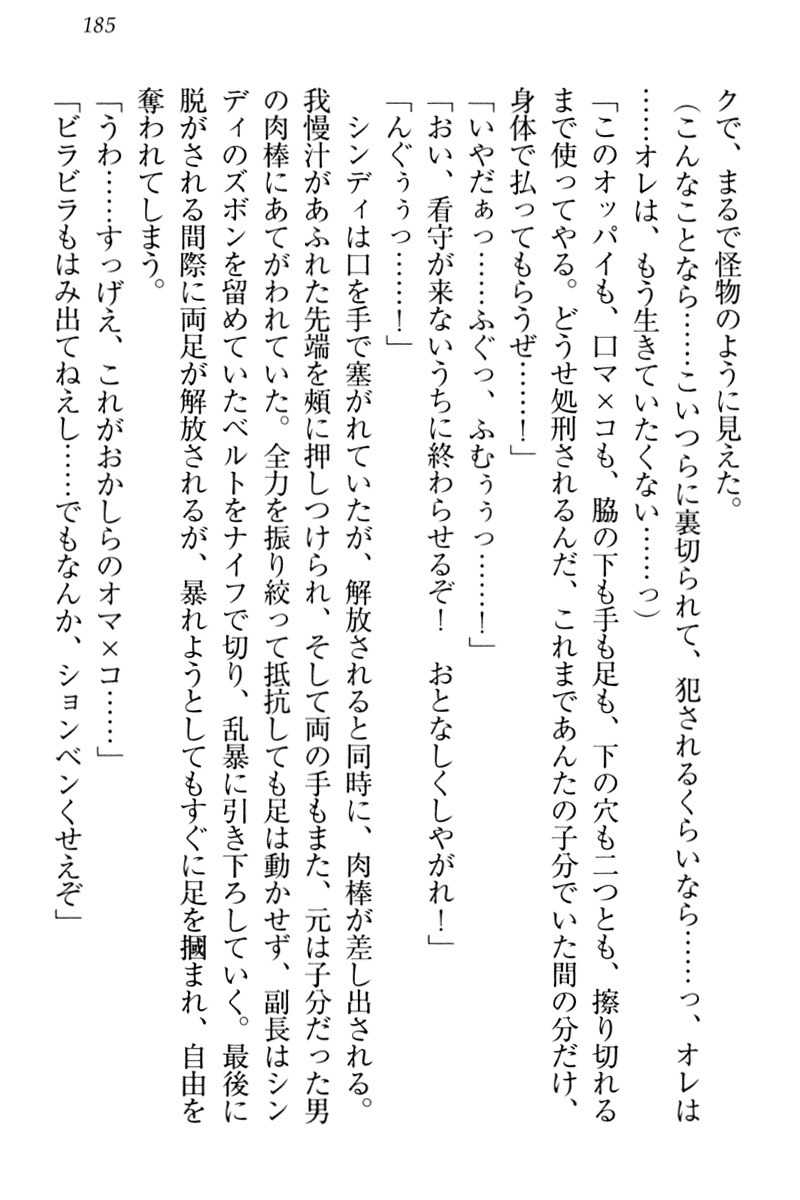 185
クで、まるで怪物のように見えた。
（こんなことなら……こいつらに裏切られて、犯されるくらいなら……っ、オレは
……オレは、もう生きていたくない……っ）
「このオッパイも、口マ×コも、脇の下も手も足も、下の穴も二つとも、擦り切れる
まで使ってやる。どうせ処刑されるんだ、これまであんたの子分でいた間の分だけ、
身体で払ってもらうぜ……！」
「いやだぁっ……ふぐっ、ふむぅぅっ……！」
「おい、看守が来ないうちに終わらせるぞ！　おとなしくしやがれ！」
「んぐぅぅっ……！」
　シンディは口を手で塞がれていたが、解放されると同時に、肉棒が差し出される。
我慢汁があふれた先端を頰に押しつけられ、そして両の手もまた、元は子分だった男
の肉棒にあてがわれていた。全力を振り絞って抵抗しても足は動かせず、副長はシン
ディのズボンを留めていたベルトをナイフで切り、乱暴に引き下ろしていく。最後に
脱がされる間際に両足が解放されるが、暴れようとしてもすぐに足を摑まれ、自由を
奪われてしまう。
「うわ……すっげえ、これがおかしらのオマ×コ……」
「ビラビラもはみ出てねえし……でもなんか、ションベンくせえぞ」